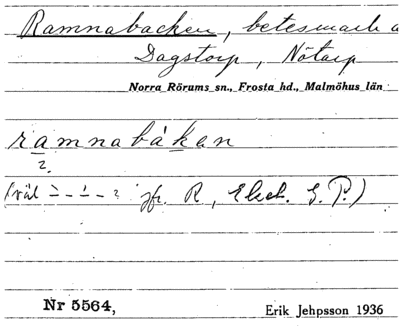 Ramnabacken, betesmark a
Dagstorp, Nötarp
Norra Rörums sn., Frosta hd., Malmöhus län
ramnabákan
?
(väl - - - ? jfr. R,
Nr 5564,
Erik Jehpsson 1936